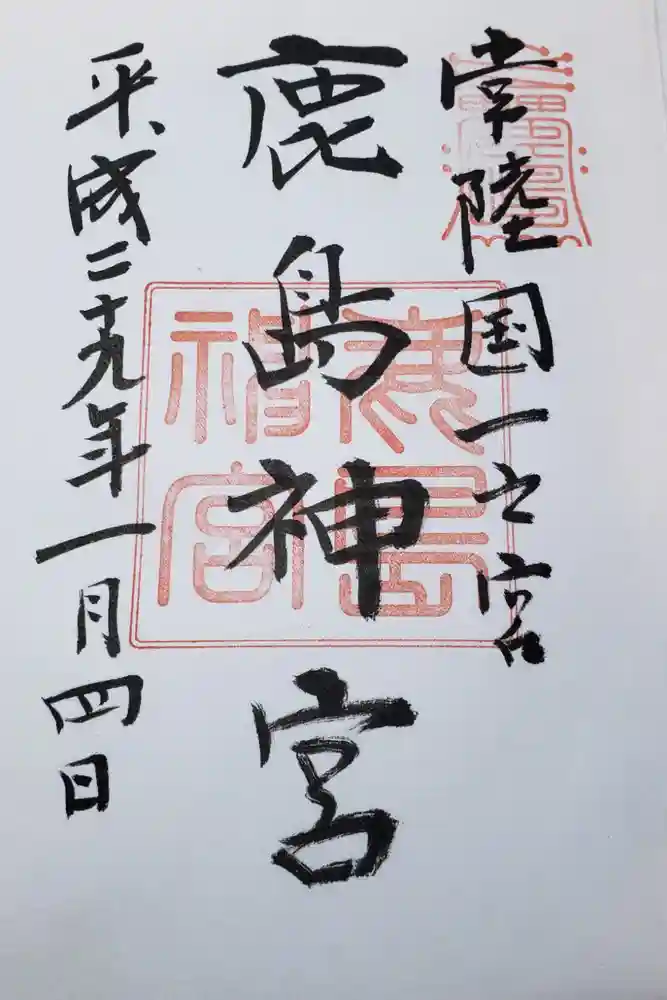 常陸国一之宮
鹿島神宮
鹿島神宮
平成二十九年一月四日